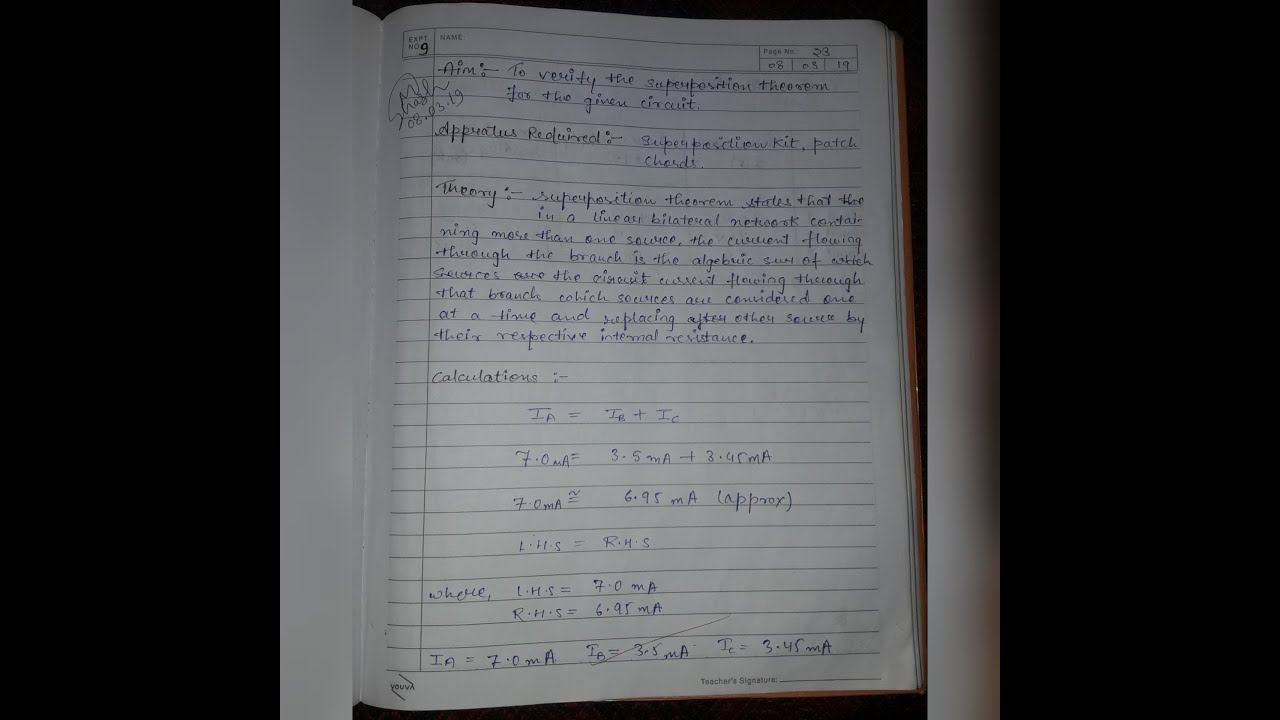 EXPT. NO. 9
NAME:
Page No. 23
08 03 19
Aim:- To verify the superposition theorem
for the given circuit.
08.03.19
Appratus Required:- Superposition Kit, patch
chords.
Theory:- superposition theorem states that the
in a linear bilateral network contai-
ning more than one source, the current flowing
through the branch is the algebric sum of which
sources are the circuit current flowing through
that branch which sources are considered one
at a time and replacing after other source by
their respective internal resistance.
Calculations :-
IA = IB + IC
7.0 mA = 3.5 mA + 3.45 mA
7.0 mA ≅ 6.95 mA (approx)
L.H.S = R.H.S
where, L.H.S = 7.0 mA
R.H.S = 6.95 mA
IA = 7.0 mA IB = 3.5 mA IC = 3.45 mA
Teacher's Signature:
YOUVA